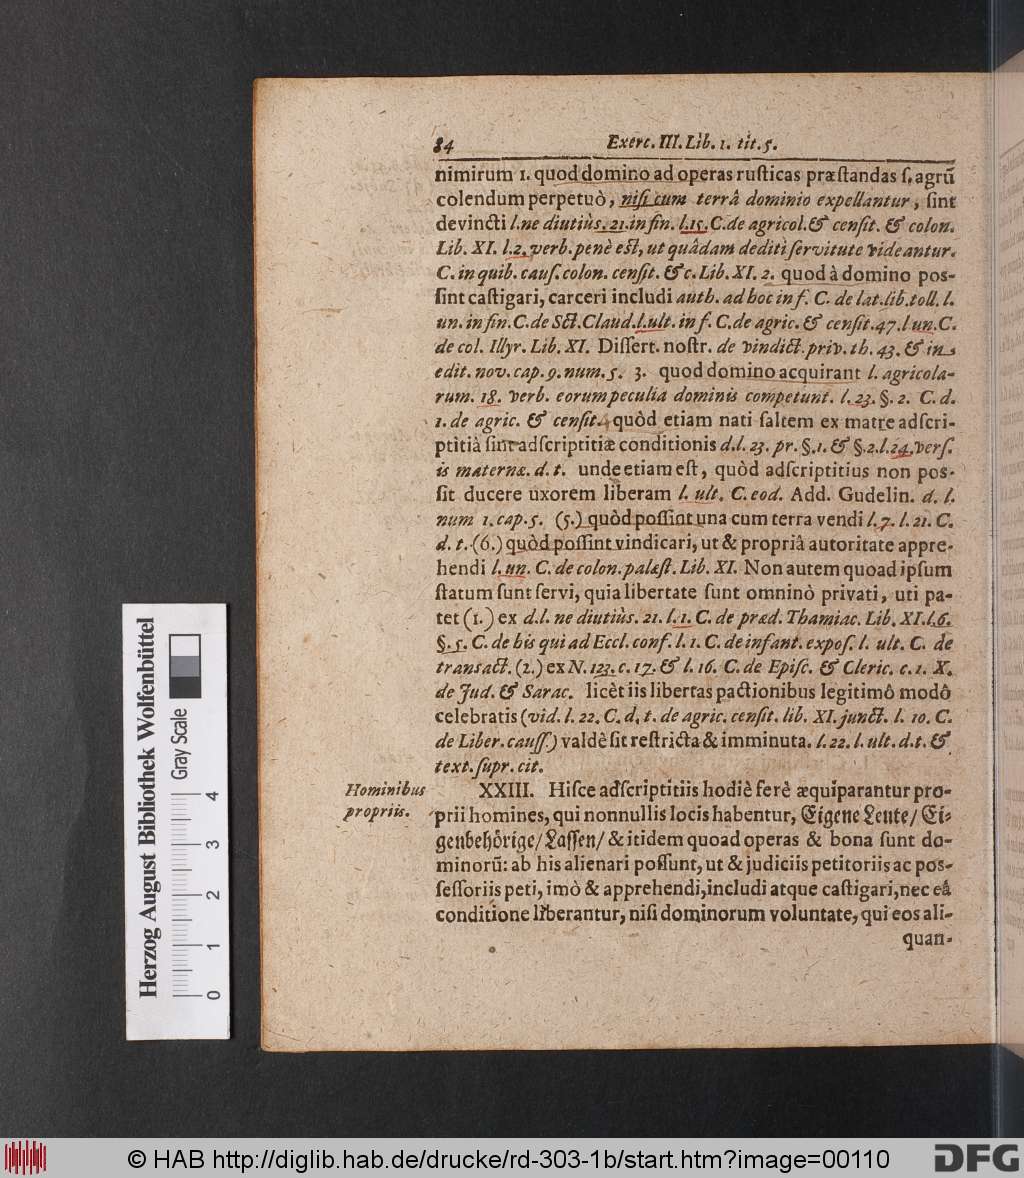 84 Exerc. III. Lib. 1. tit. 5.
nimirum 1. quod domino ad operas rusticas præstandas s. agrū
colendum perpetuò, nisi cum terrâ dominio expellantur, sint
devincti l. ne diutiùs. 21. in fin. l. 15. C. de agricol. & censit. & colon.
Lib. XI. l. 2. verb. penè est, ut quâdam dediti servitute videantur.
C. in quib. caus. colon. censit. & c. Lib. XI. 2. quod à domino pos-
sint castigari, carceri includi auth. ad hoc in f. C. de lat. lib. toll. l.
un. in fin. C. de Sct. Claud. l. ult. in f. C. de agric. & censit. 47. l un. C.
de col. Illyr. Lib. XI. Dissert. nostr. de vindict. priv. th. 43. & in
edit. nov. cap. 9. num. 5. 3. quod domino acquirant l. agricola-
rum. 18. verb. eorum peculia dominis competunt. l. 23. §. 2. C. d.
1. de agric. & censit. quòd etiam nati saltem ex matre adscri-
ptitiâ sint adscriptitiæ conditionis d. l. 23. pr. §. 1. & §. 2. l. 24. vers.
is maternæ. d. t. unde etiam est, quòd adscriptitius non pos-
sit ducere uxorem liberam l. ult. C. eod. Add. Gudelin. d. l.
num 1. cap. 5. (5.) quòd possint una cum terra vendi l. 7. l. 21. C.
d. t. (6.) quòd possint vindicari, ut & propriâ autoritate appre-
hendi l. un. C. de colon. palæst. Lib. XI. Non autem quoad ipsum
statum sunt servi, quia libertate sunt omninò privati, uti pa-
tet (1.) ex d. l. ne diutiùs. 21. l. 1. C. de præd. Thamiac. Lib. XI. l. 6.
§. 5. C. de his qui ad Eccl. conf. l. 1. C. de infant. expos. l. ult. C. de
transact. (2.) ex N. 123. c. 17. & l. 16. C. de Episc. & Cleric. c. 1. X.
de Jud. & Sarac. licèt iis libertas pactionibus legitimô modô
celebratis (vid. l. 22. C. d. t. de agric. censit. lib. XI. junct. l. 10. C.
de Liber. causs.) valdè sit restricta & imminuta. l. 22. l. ult. d. t. &
text. supr. cit.
Hominibus propriis.
XXIII. Hisce adscriptitiis hodiè ferè æquiparantur pro-
prii homines, qui nonnullis locis habentur, Eigene Leute/ Ei-
genbehörige/ Lassen/ & itidem quoad operas & bona sunt do-
minorū: ab his alienari possunt, ut & judiciis petitoriis ac pos-
sessoriis peti, imò & apprehendi, includi atque castigari, nec eâ
conditione liberantur, nisi dominorum voluntate, qui eos ali-
quan-
Herzog August Bibliothek Wolfenbüttel
Gray Scale
0 1 2 3 4
© HAB http://diglib.hab.de/drucke/rd-303-1b/start.htm?image=00110
DFG